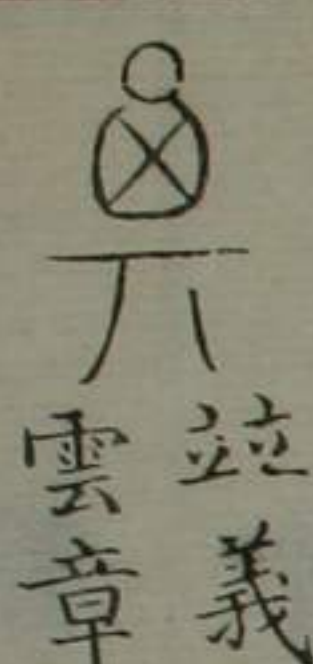 竝義
雲章